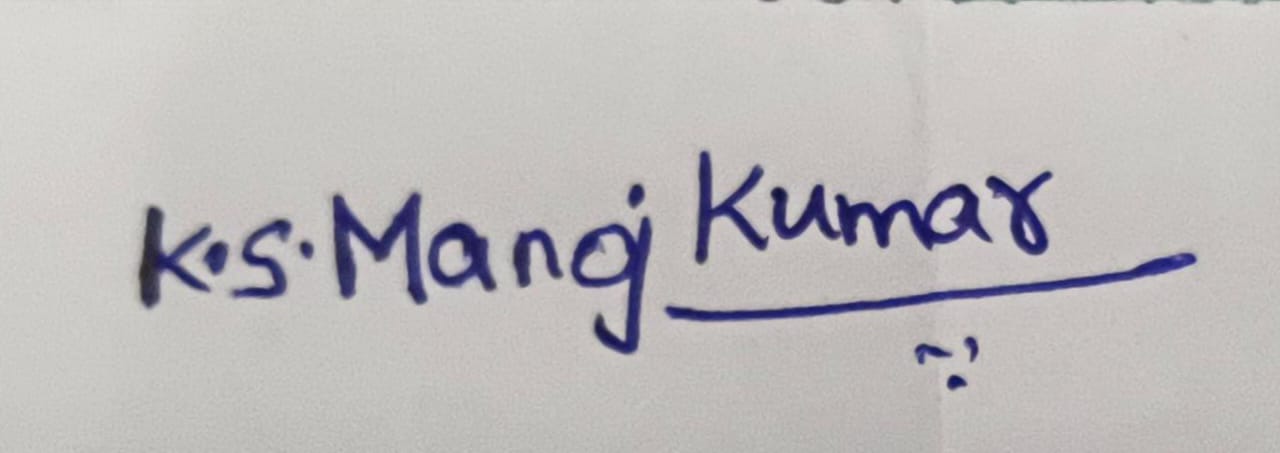 K.S.Manoj Kumar